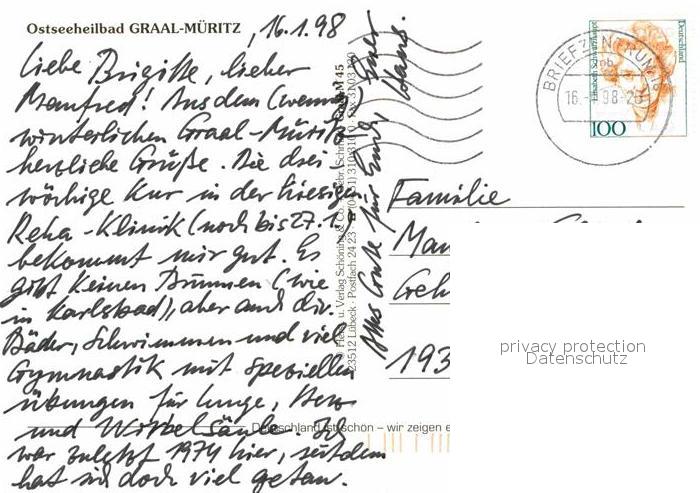 Ostseeheilbad GRAAL-MÜRITZ, 16.1.98
Liebe Brigitte, lieber
Manfred! Aus dem (wenig
winterlichen Graal-Müritz
herzliche Grüße. Die drei
wöchige Kur in der hiesigen
Reha-Klinik (noch bis 27.1.
bekommt mir gut. Es
gibt keinen Brunnen (wie
in Karlsbad), aber auch div.
Bäder, Schwimmen und viel
Gymnastik mit speziellen
Übungen für Lunge, Herz
und Wirbelsäule. Ich
war zuletzt 1974 hier, seitdem
hat sich doch viel getan.
Alles Gute für Euch, Euer
Klaus.
u. Verlag Schöning & Co.
23512 Lübeck · Postfach 24 23
Deutschland ist schön – wir zeigen e
BRIEFZENTRUM 18
16.-1.98-20
Deutschland
Elisabeth Schwarzhaupt
100
Familie
Man
Geh
193
privacy protection
Datenschutz